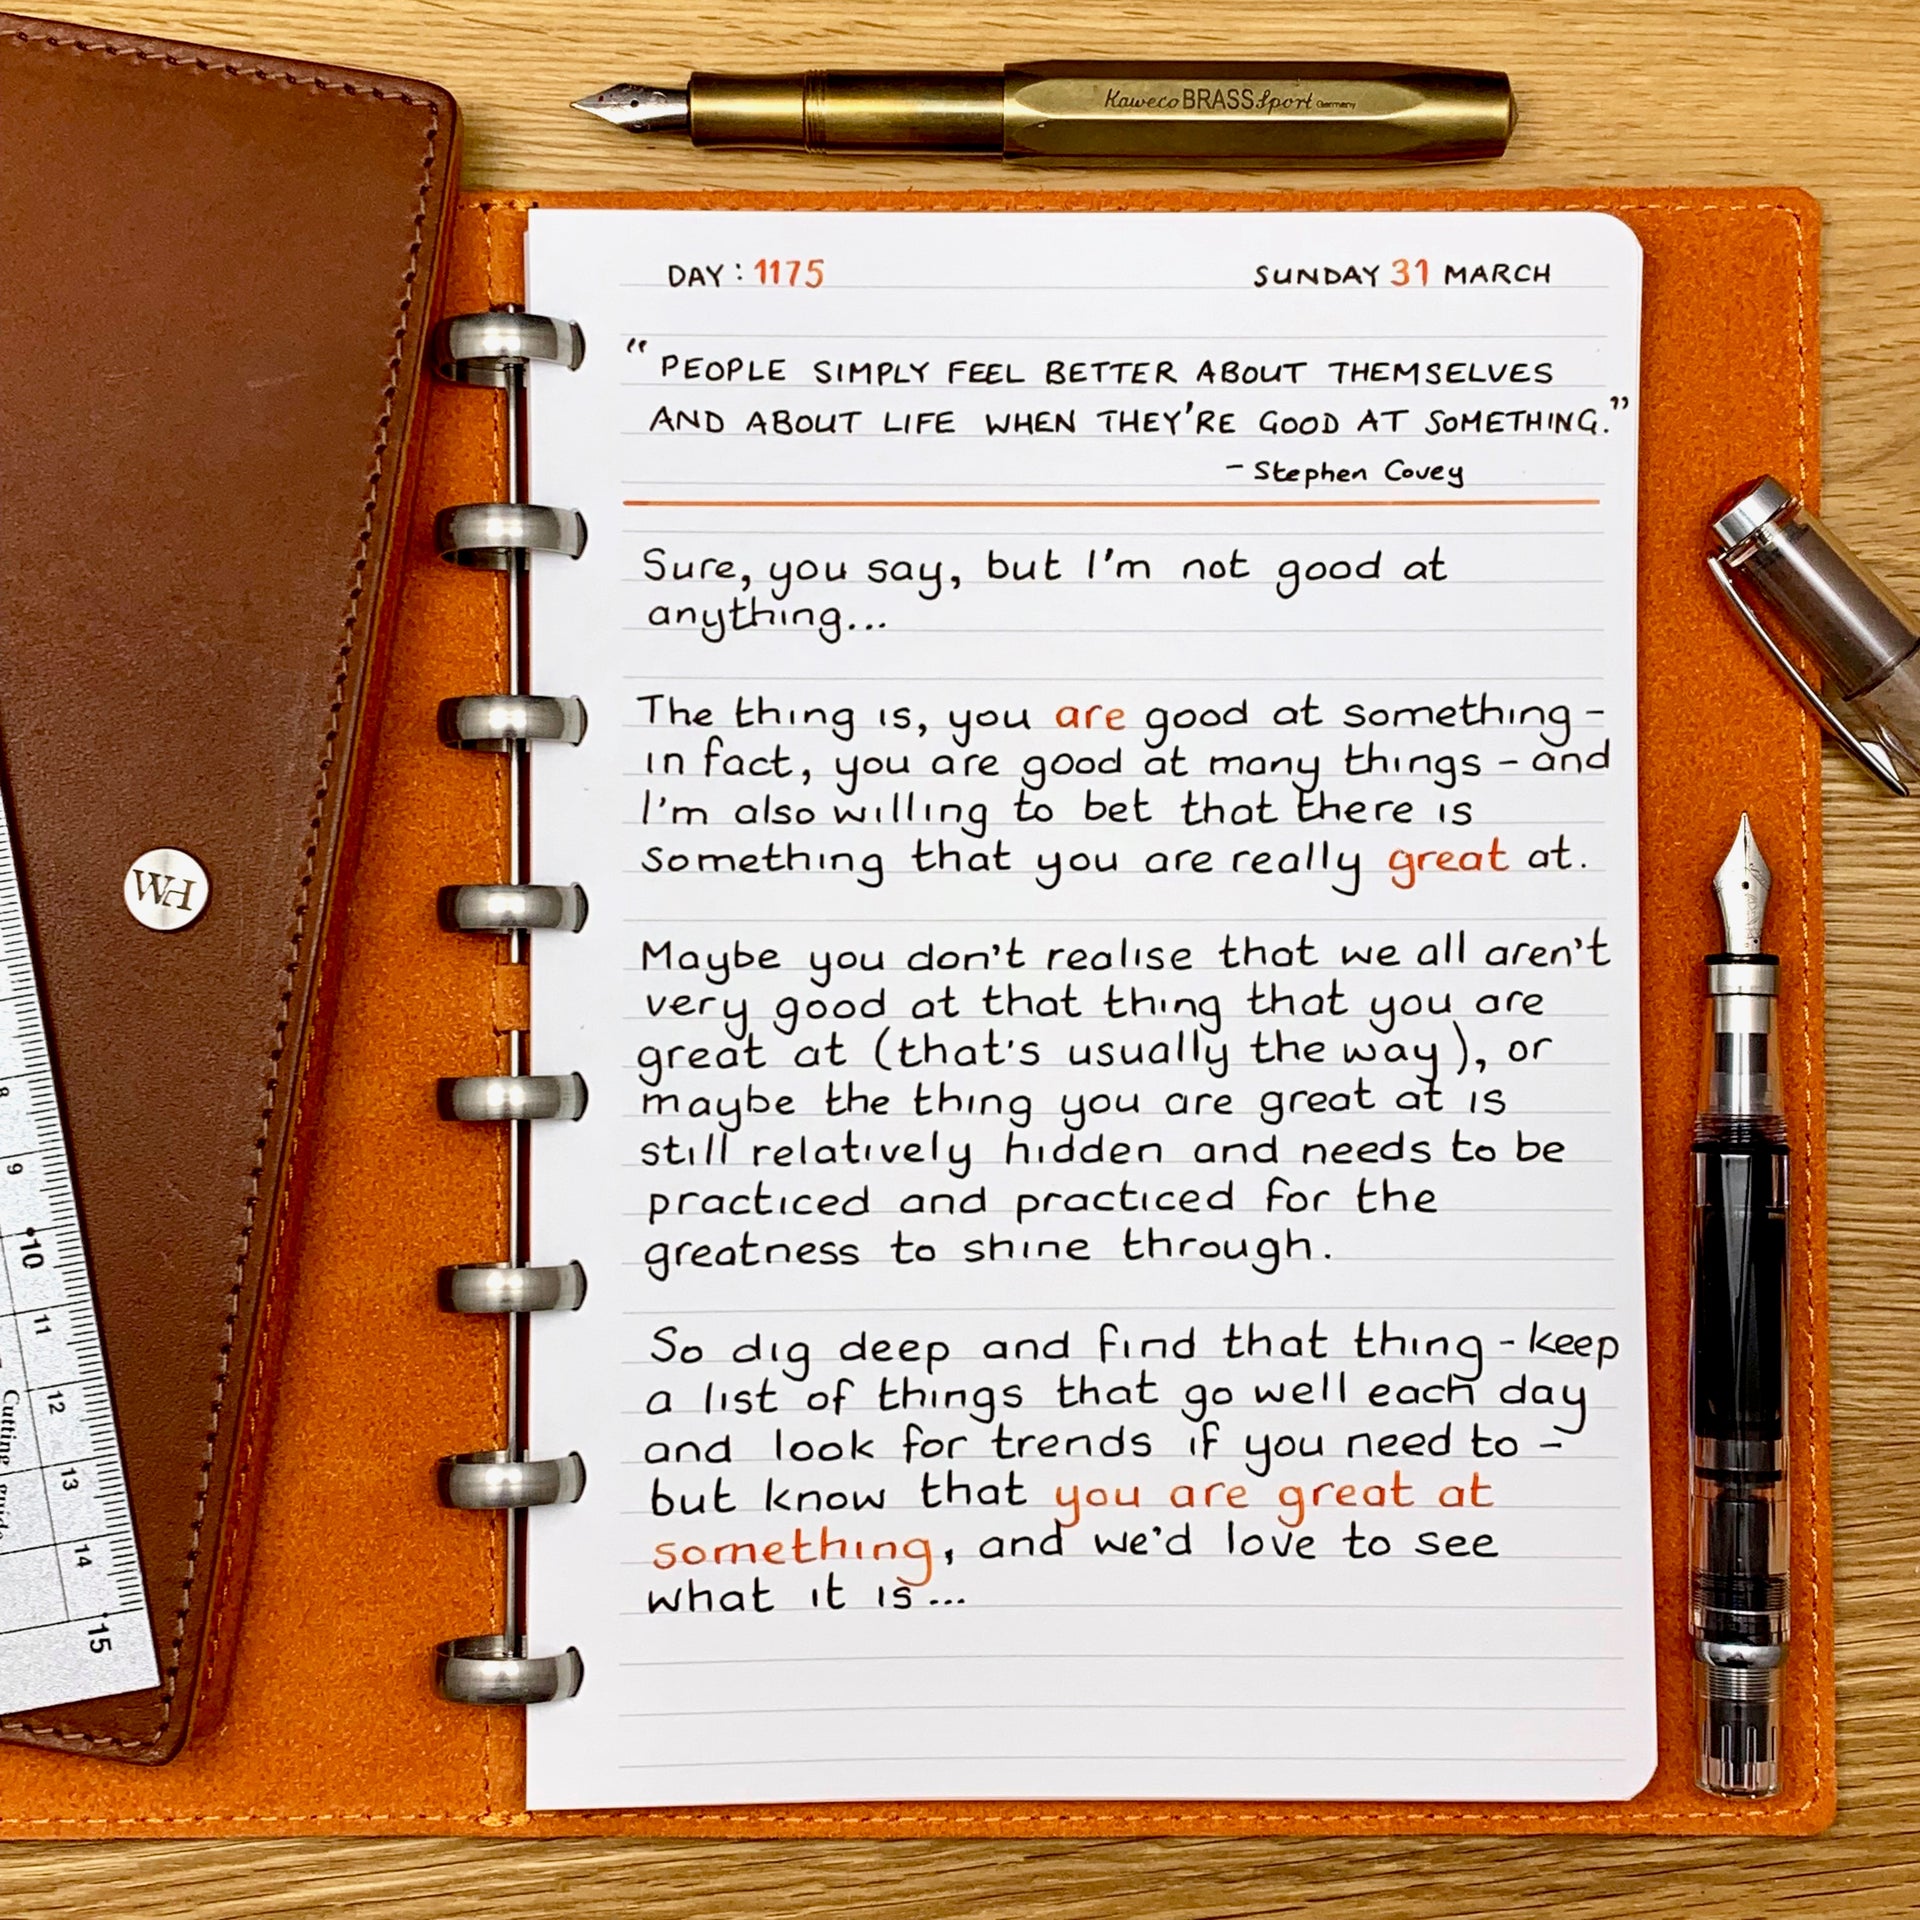 Kaweco BRASS Sport Germany
DAY : 1175
SUNDAY 31 MARCH
“ PEOPLE SIMPLY FEEL BETTER ABOUT THEMSELVES
AND ABOUT LIFE WHEN THEY'RE GOOD AT SOMETHING.”
- Stephen Covey
Sure, you say, but I'm not good at
anything...
The thing is, you are good at something -
in fact, you are good at many things - and
I'm also willing to bet that there is
something that you are really great at.
Maybe you don't realise that we all aren't
very good at that thing that you are
great at (that's usually the way), or
maybe the thing you are great at is
still relatively hidden and needs to be
practiced and practiced for the
greatness to shine through.
So dig deep and find that thing - keep
a list of things that go well each day
and look for trends if you need to -
but know that you are great at
something, and we'd love to see
what it is...
WH
8
9
10
11
12
13
14
15
Cutting guide